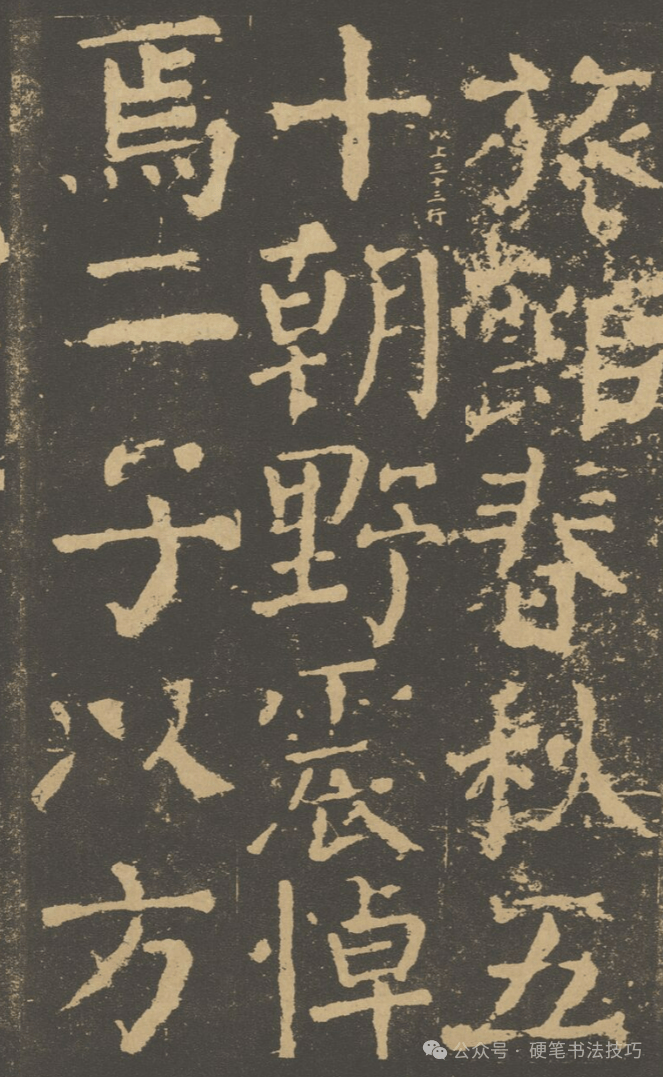 旅館春秋五
十朝野震悼
焉二子以方
以上三十三行
公众号 · 硬笔书法技巧